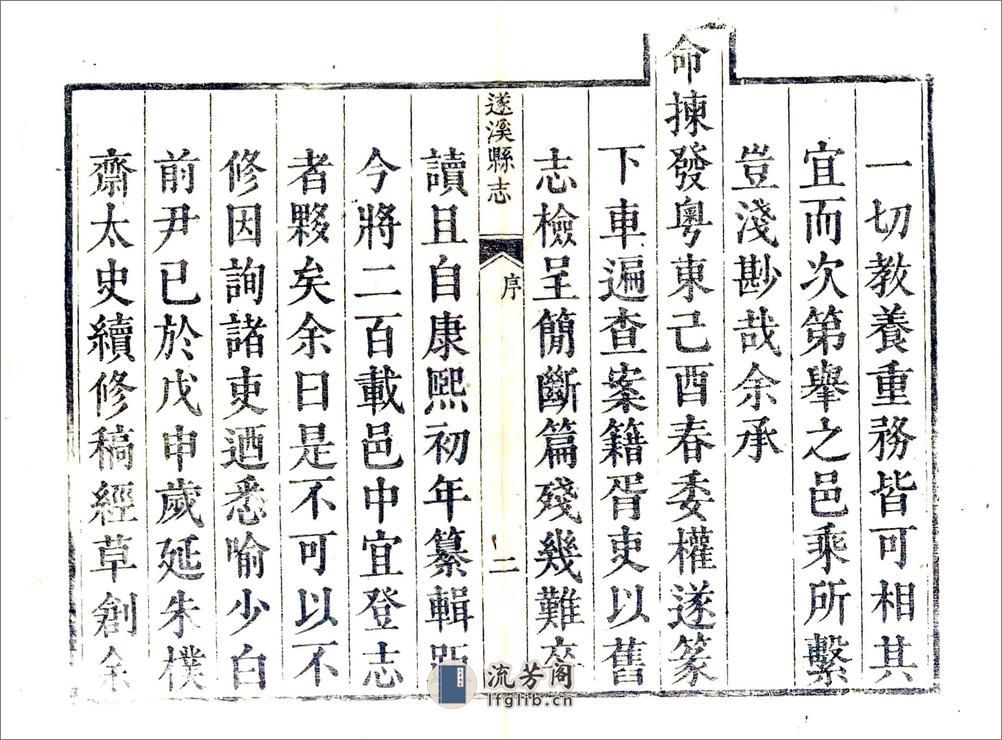 一切教養重務皆可相其
宜而次第舉之邑乘所繫
豈淺尠哉余承
命揀發粵東己酉春委權遂篆
下車遍查案籍胥吏以舊
志檢呈簡斷篇殘幾難卒
遂溪縣志
序
二
讀且自康熙初年纂輯距
今將二百載邑中宜登志
者夥矣余曰是不可以不
修因詢諸吏迺悉喻少白
前尹已於戊申歲延朱樸
齋太史續修稿經草創余
流芳阁
lfglib.cn